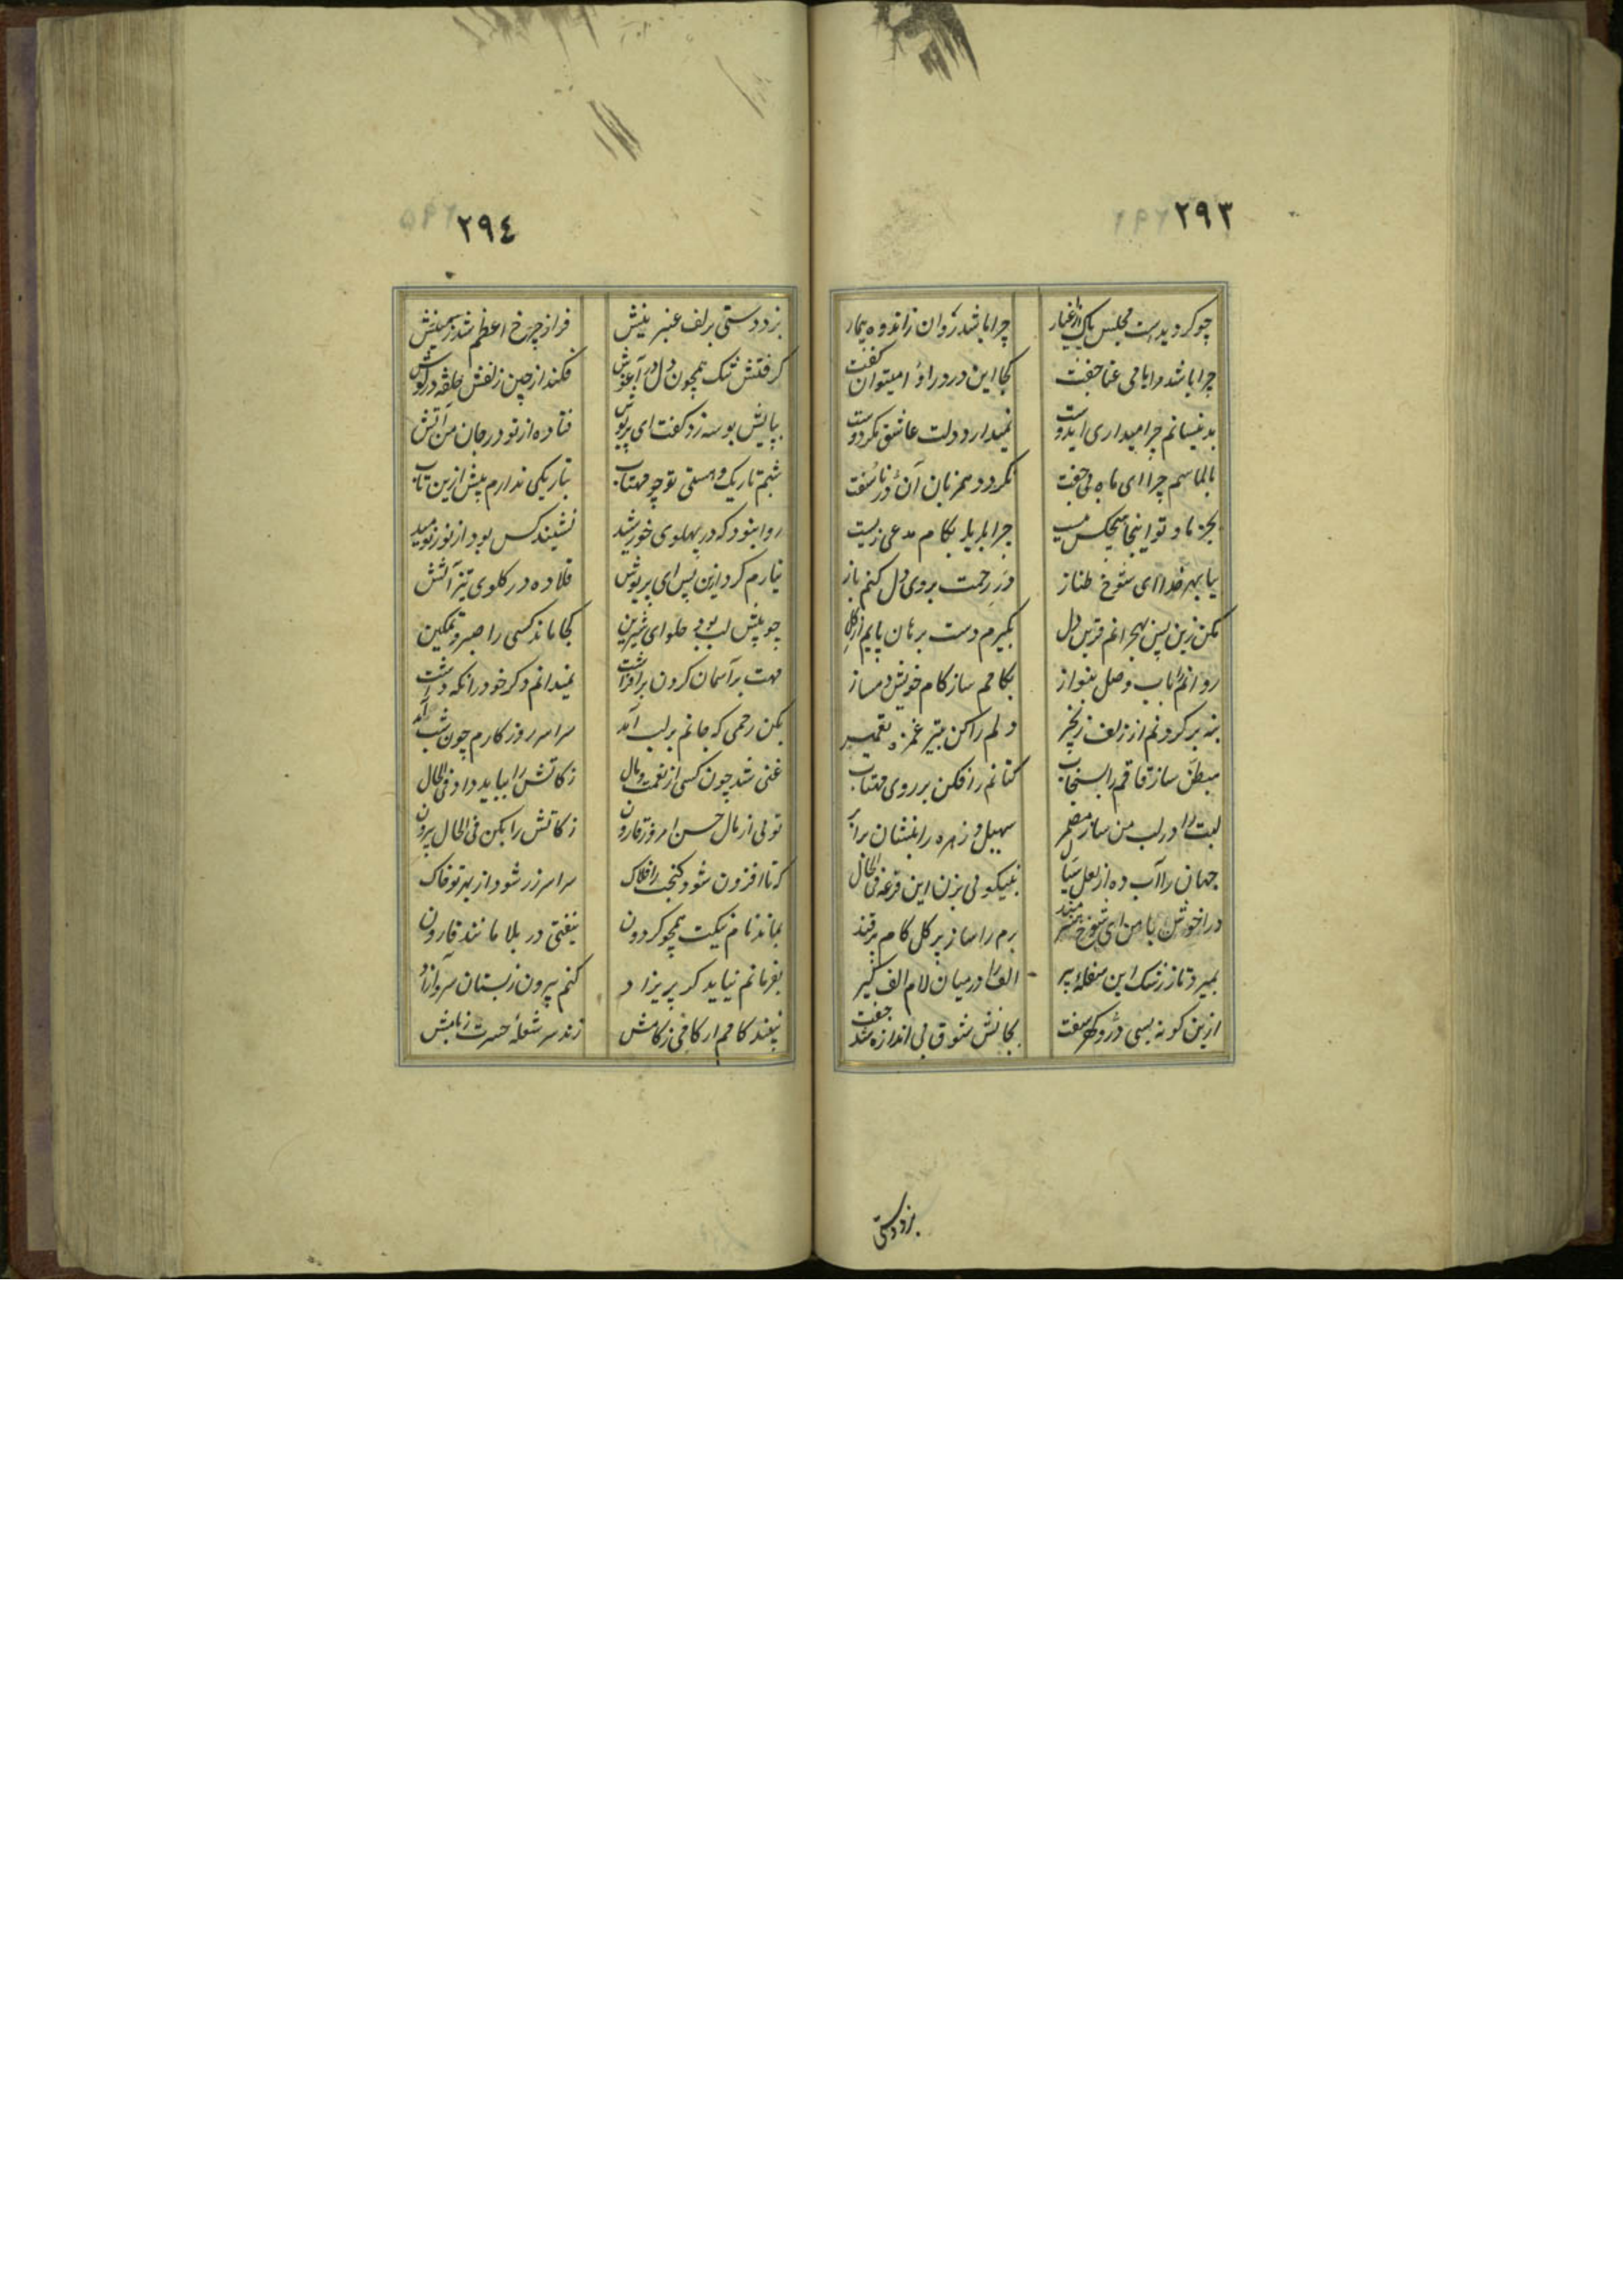 ٢٩٣
چو کردیدست مجلس پاک از اغیار چرا باشد روان زاندوه بیمار
چرا باشد مرا با می عنا جفت کجا این درد را او را میتوان گفت
بدینسانم چرا میداری ایدوست نمیدارد دلت عاشق مکر دوست
بالماسم چرا ای ماه بی جفت نکردد همزبان آن در ناسفت
بجز ما و تو اینجا هیچکس نیست چرا باید بکام مدعی زیست
بیا بهر خدا ای شوخ طناز در رحمت بروی دل کنم باز
مکن زین پس بهجرانم قرین دل بکیرم دست برهان پایم از کل
روانم را باب وصل بنواز بکامم ساز کام خویش دمساز
بنه بر کردنم از زلف زنجیر دلم را کن بتیر غمزه تعمیر
مبطن ساز قاقم را بسنجاب کتانم را فکن بر روی مهتاب
لبت را در لب من ساز مضمر سهیل و زهره را بنشان برابر
جهان را آب ده از لعل سیال بنیکوئی بزن این قرعه فی الحال
درا خوش با من ای شوخ برم را ساز پر کل کام پر قند
بمیرد تا ز رشک این سفله پیر الف را در میان لام الف کیر
ازین کونه بسی در و کهر سفت بجانش شوق بی اندازه شد جفت
بزد دستی
٢٩٤
بزد دستی بزلف عنبرینش فراز چرخ اعظم شد زمینش
کرفتش تنک همچون دل در آغوش فکند از چین زلفش حلقه در کوش
بپایش بوسه زد کفت ای پریوش فتاده از تو در جان من آتش
شبم تاریک و هستی تو چو مهتاب بتاریکی ندارم بیش ازین تاب
روا نبود که در پهلوی خورشید نشیند کس بود از نور نومید
نیارم کرد ازین پس ای پریوش قلاده در کلوی تیز آتش
چو پیش لب بود حلوای شیرین کجا ماند کسی را صبر و تمکین
مهت بر آسمان کردن برافراشت نمیدانم دکر خود را نکه داشت
بکن رحمی که جانم بر لب آمد سراسر روز کارم چون شب آمد
غنی شد چون کسی از نعمت و مال زکاتش را بباید داد فی الحال
توئی از مال حسن امروز قارون زکاتش را بکن فی الحال بیرون
که تا افزون شود کنجت را فلاک سراسر زر شود از بهر تو خاک
بماند نام نیکت همچو کردون نیفتی در بلا مانند قارون
بفرمانم نیاید کر پریزاد کنم بیرون ز بستان سرو آزاد
نبیند کامم ار کامی ز کامش زند سر شعله حسرت ز بامش